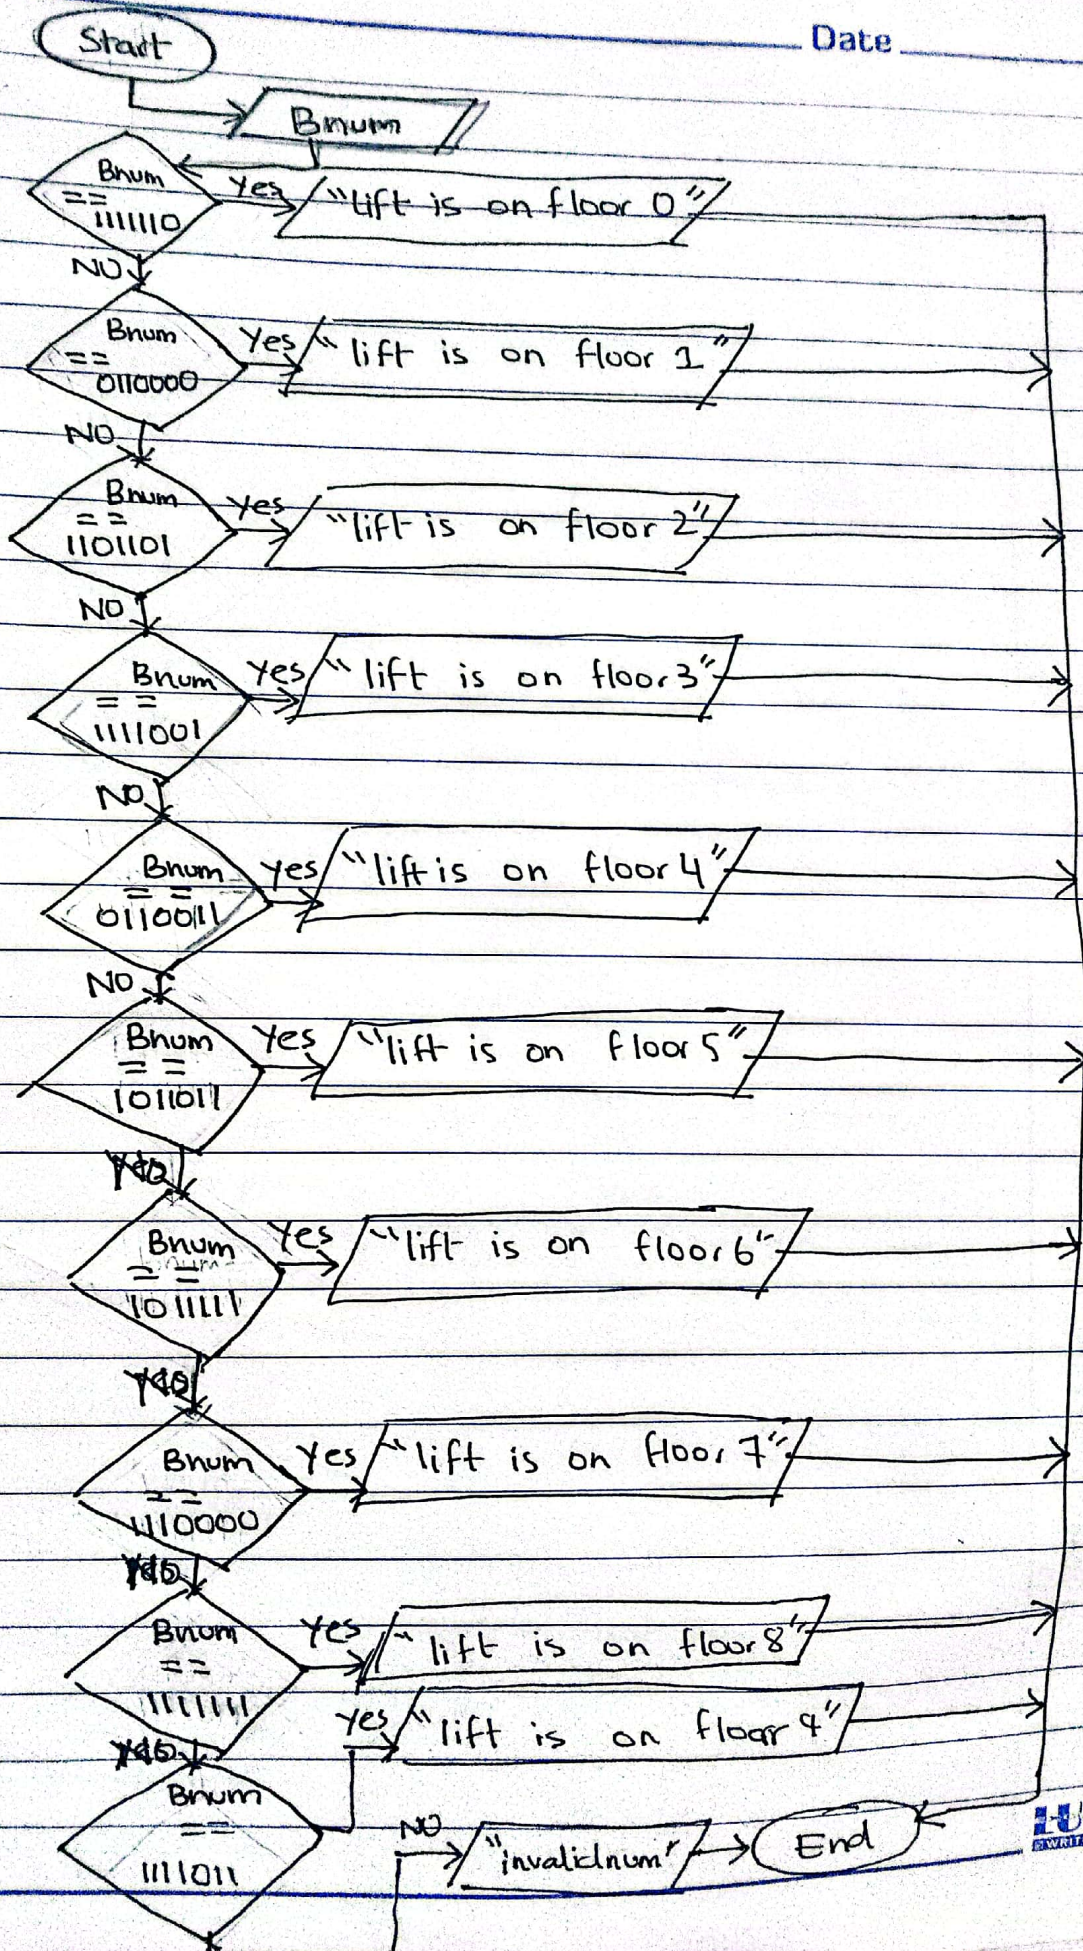 Date
Start
Bnum
Bnum
==
1111110
yes
"lift is on floor 0"
NO
Bnum
==
0110000
Yes
"lift is on floor 1"
NO
Bnum
==
1101101
Yes
"lift is on floor 2"
NO
Bnum
==
1111001
Yes
"lift is on floor 3"
NO
Bnum
==
0110011
yes
"lift is on floor 4"
NO
Bnum
==
1011011
Yes
"lift is on floor 5"
Bnum
==
1011111
Yes
"lift is on floor 6"
Bnum
==
1110000
Yes
"lift is on floor 7"
Bnum
==
1111111
Yes
"lift is on floor 8"
Yes
"lift is on floor 9"
Bnum
==
1111011
NO
"invalidnum"
End